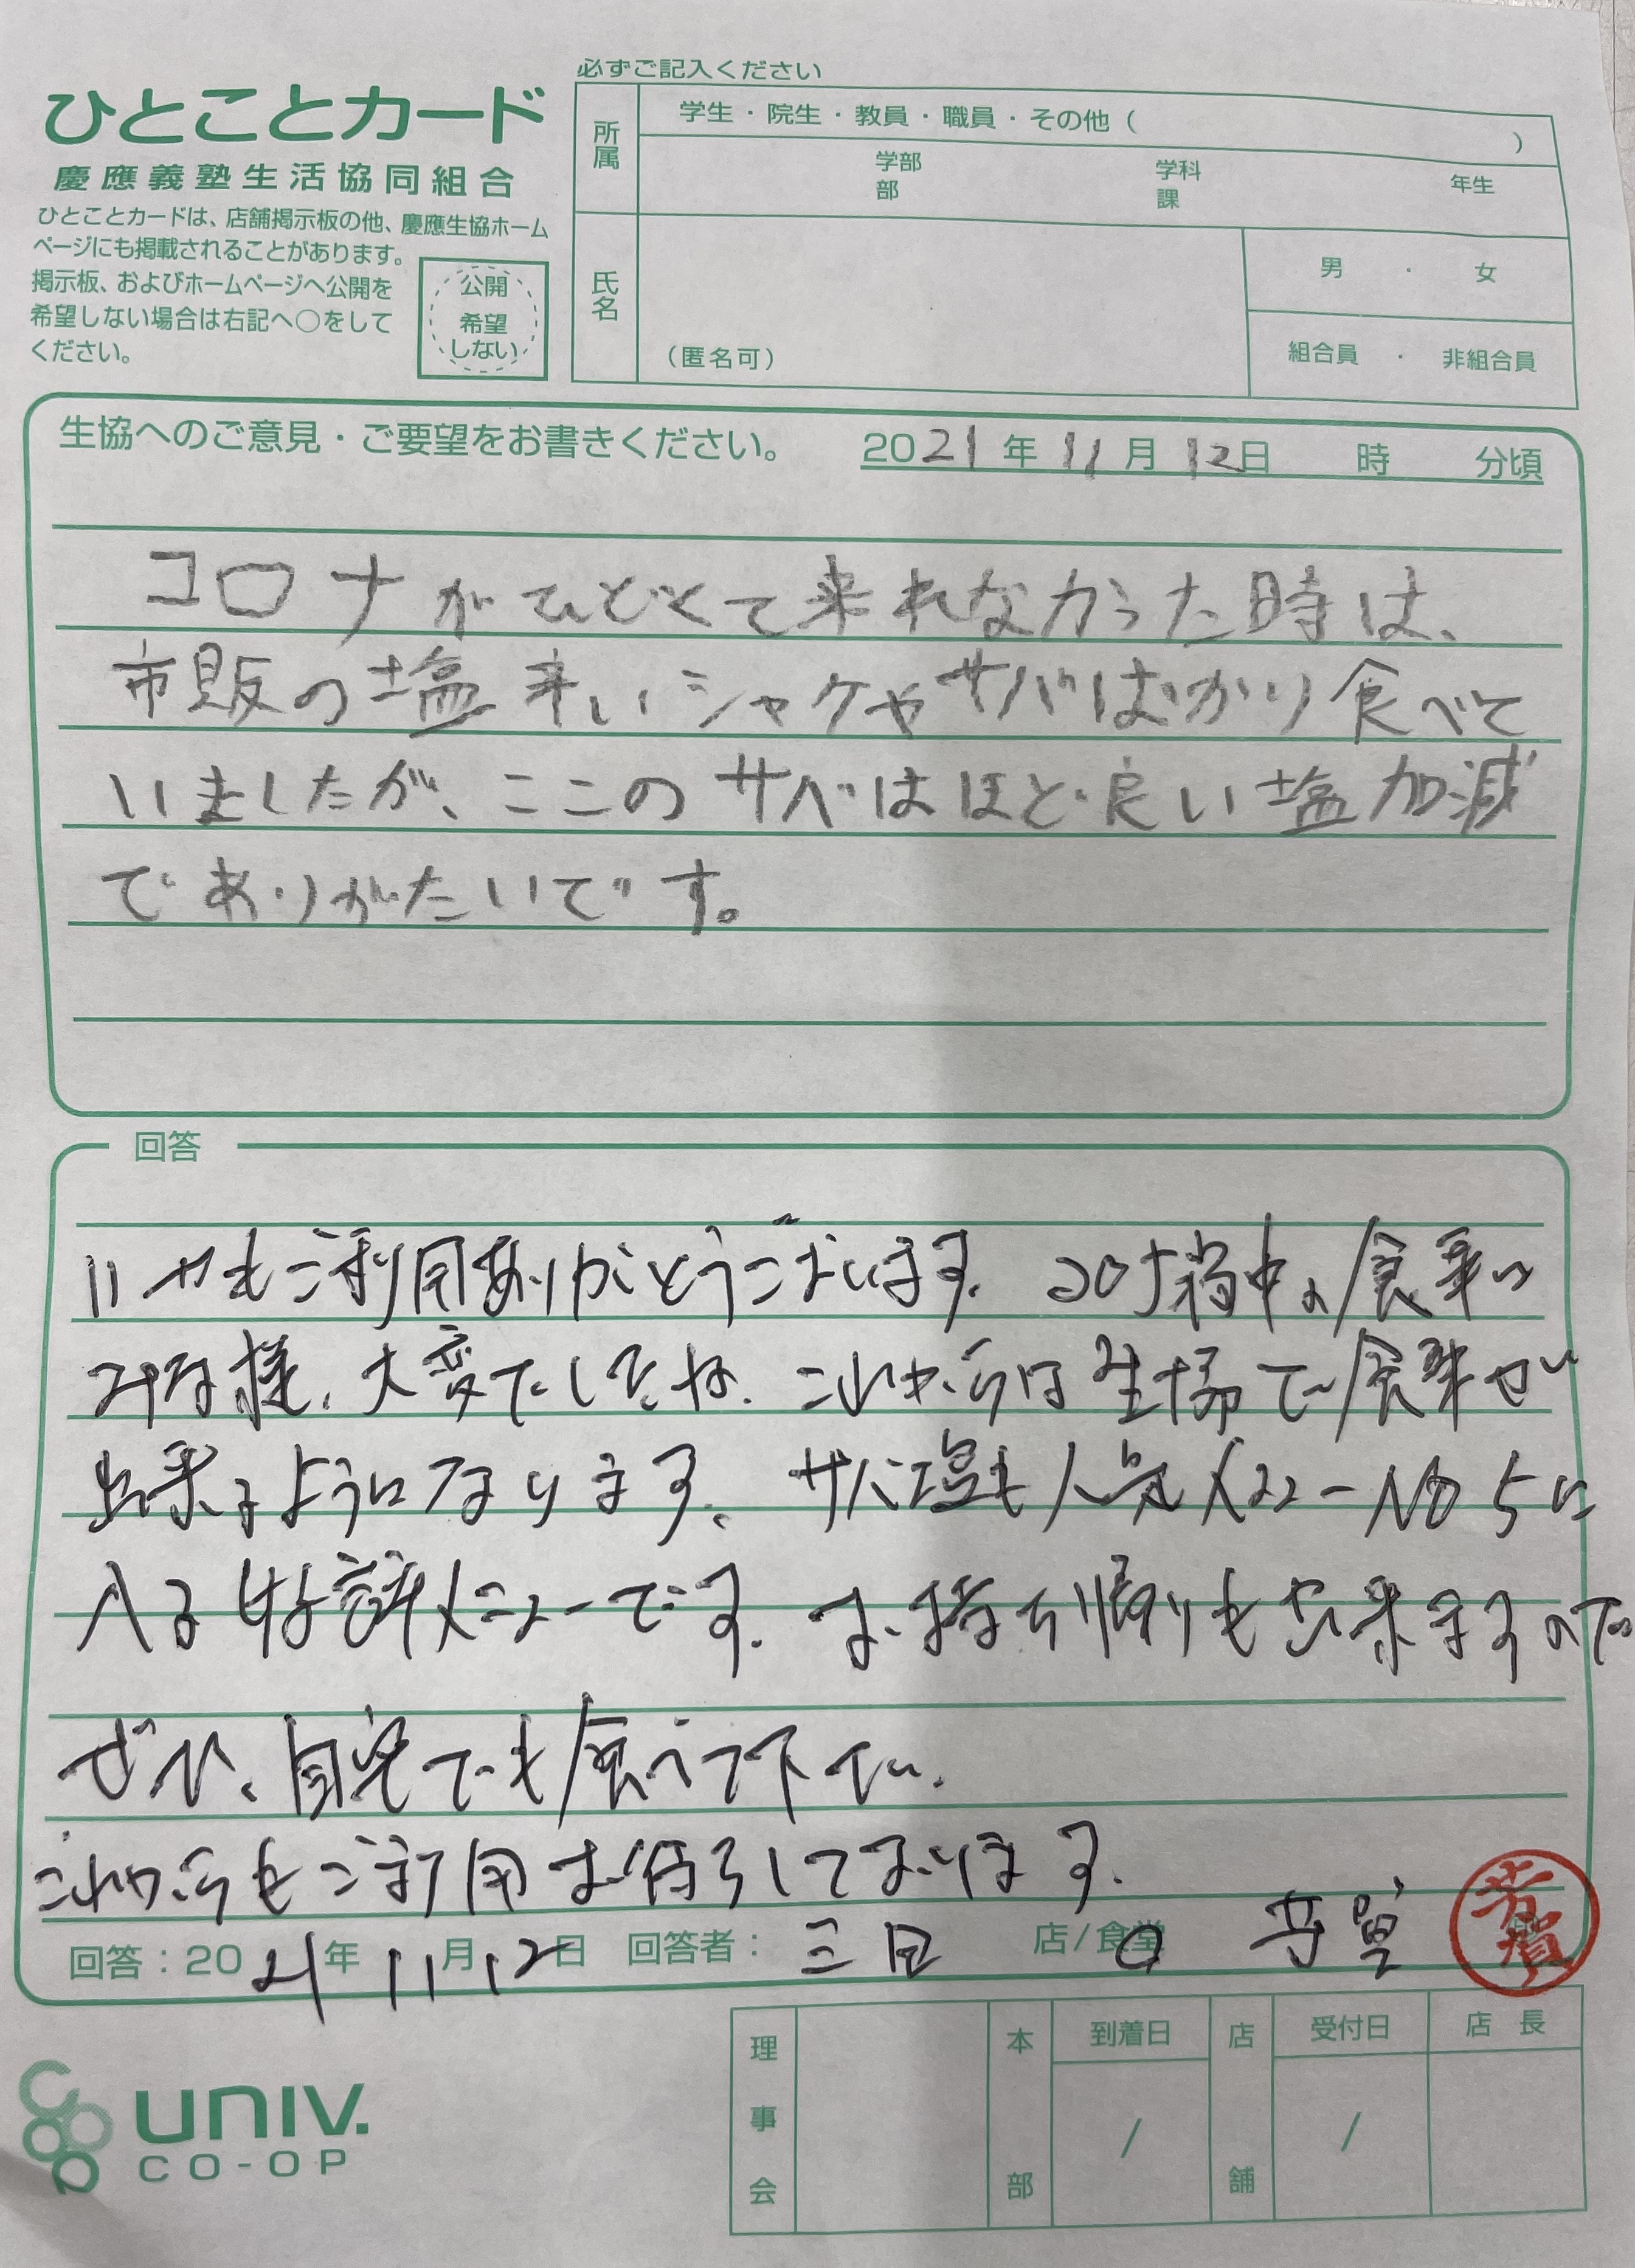 必ずご記入ください
ひとことカード
慶應義塾生活協同組合
ひとことカードは、店舗掲示板の他、慶應生協ホーム
ページにも掲載されることがあります。
掲示板、およびホームページへ公開を
希望しない場合は右記へ○をして
ください。
公開
希望
しない
所属
学生・院生・教員・職員・その他（　　）
学部 学科 年生
部 課
氏名
（匿名可）
男・女
組合員・非組合員
生協へのご意見・ご要望をお書きください。 2021年11月12日 時 分頃
コロナがひどくて来れなかった時は、
市販の塩辛いシャケやサバばかり食べて
いましたが、ここのサバはほど良い塩加減
でありがたいです。
回答
いつもご利用ありがとうございます。コロナ禍中の食事は
みな様、大変でしたね。これからは生協で食事が
出来るようになります。サバ塩も人気メニューNo5に
入る好評メニューです。お持ち帰りも出来ますので
ぜひ、自宅でも食べて下さい。
これからもご利用お待ちしております。
回答：2021年11月12日 回答者： 三田 店/食堂
理事会
本部
到着日
/
店舗
受付日
/
店長
univ.
CO-OP